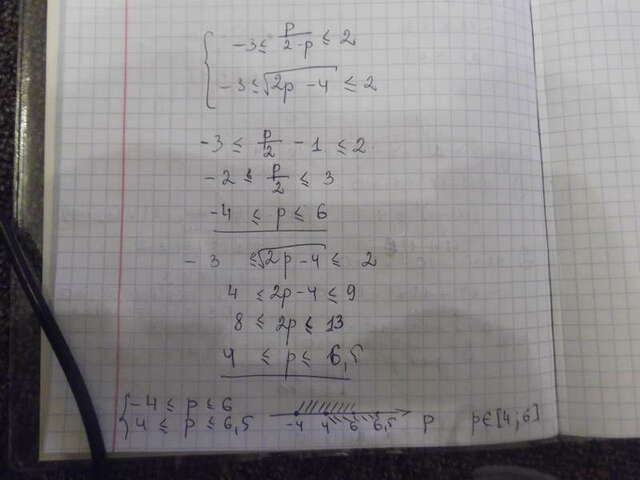 { -3 ≤ p/(2-p) ≤ 2
-3 ≤ √(2p - 4) ≤ 2
-3 ≤ p/2 - 1 ≤ 2
-2 ≤ p/2 ≤ 3
-4 ≤ p ≤ 6
-3 ≤ √(2p - 4) ≤ 2
4 ≤ 2p - 4 ≤ 9
8 ≤ 2p ≤ 13
4 ≤ p ≤ 6,5
{ -4 ≤ p ≤ 6
4 ≤ p ≤ 6,5
-4 4 6 6,5 p p∈[4;6]